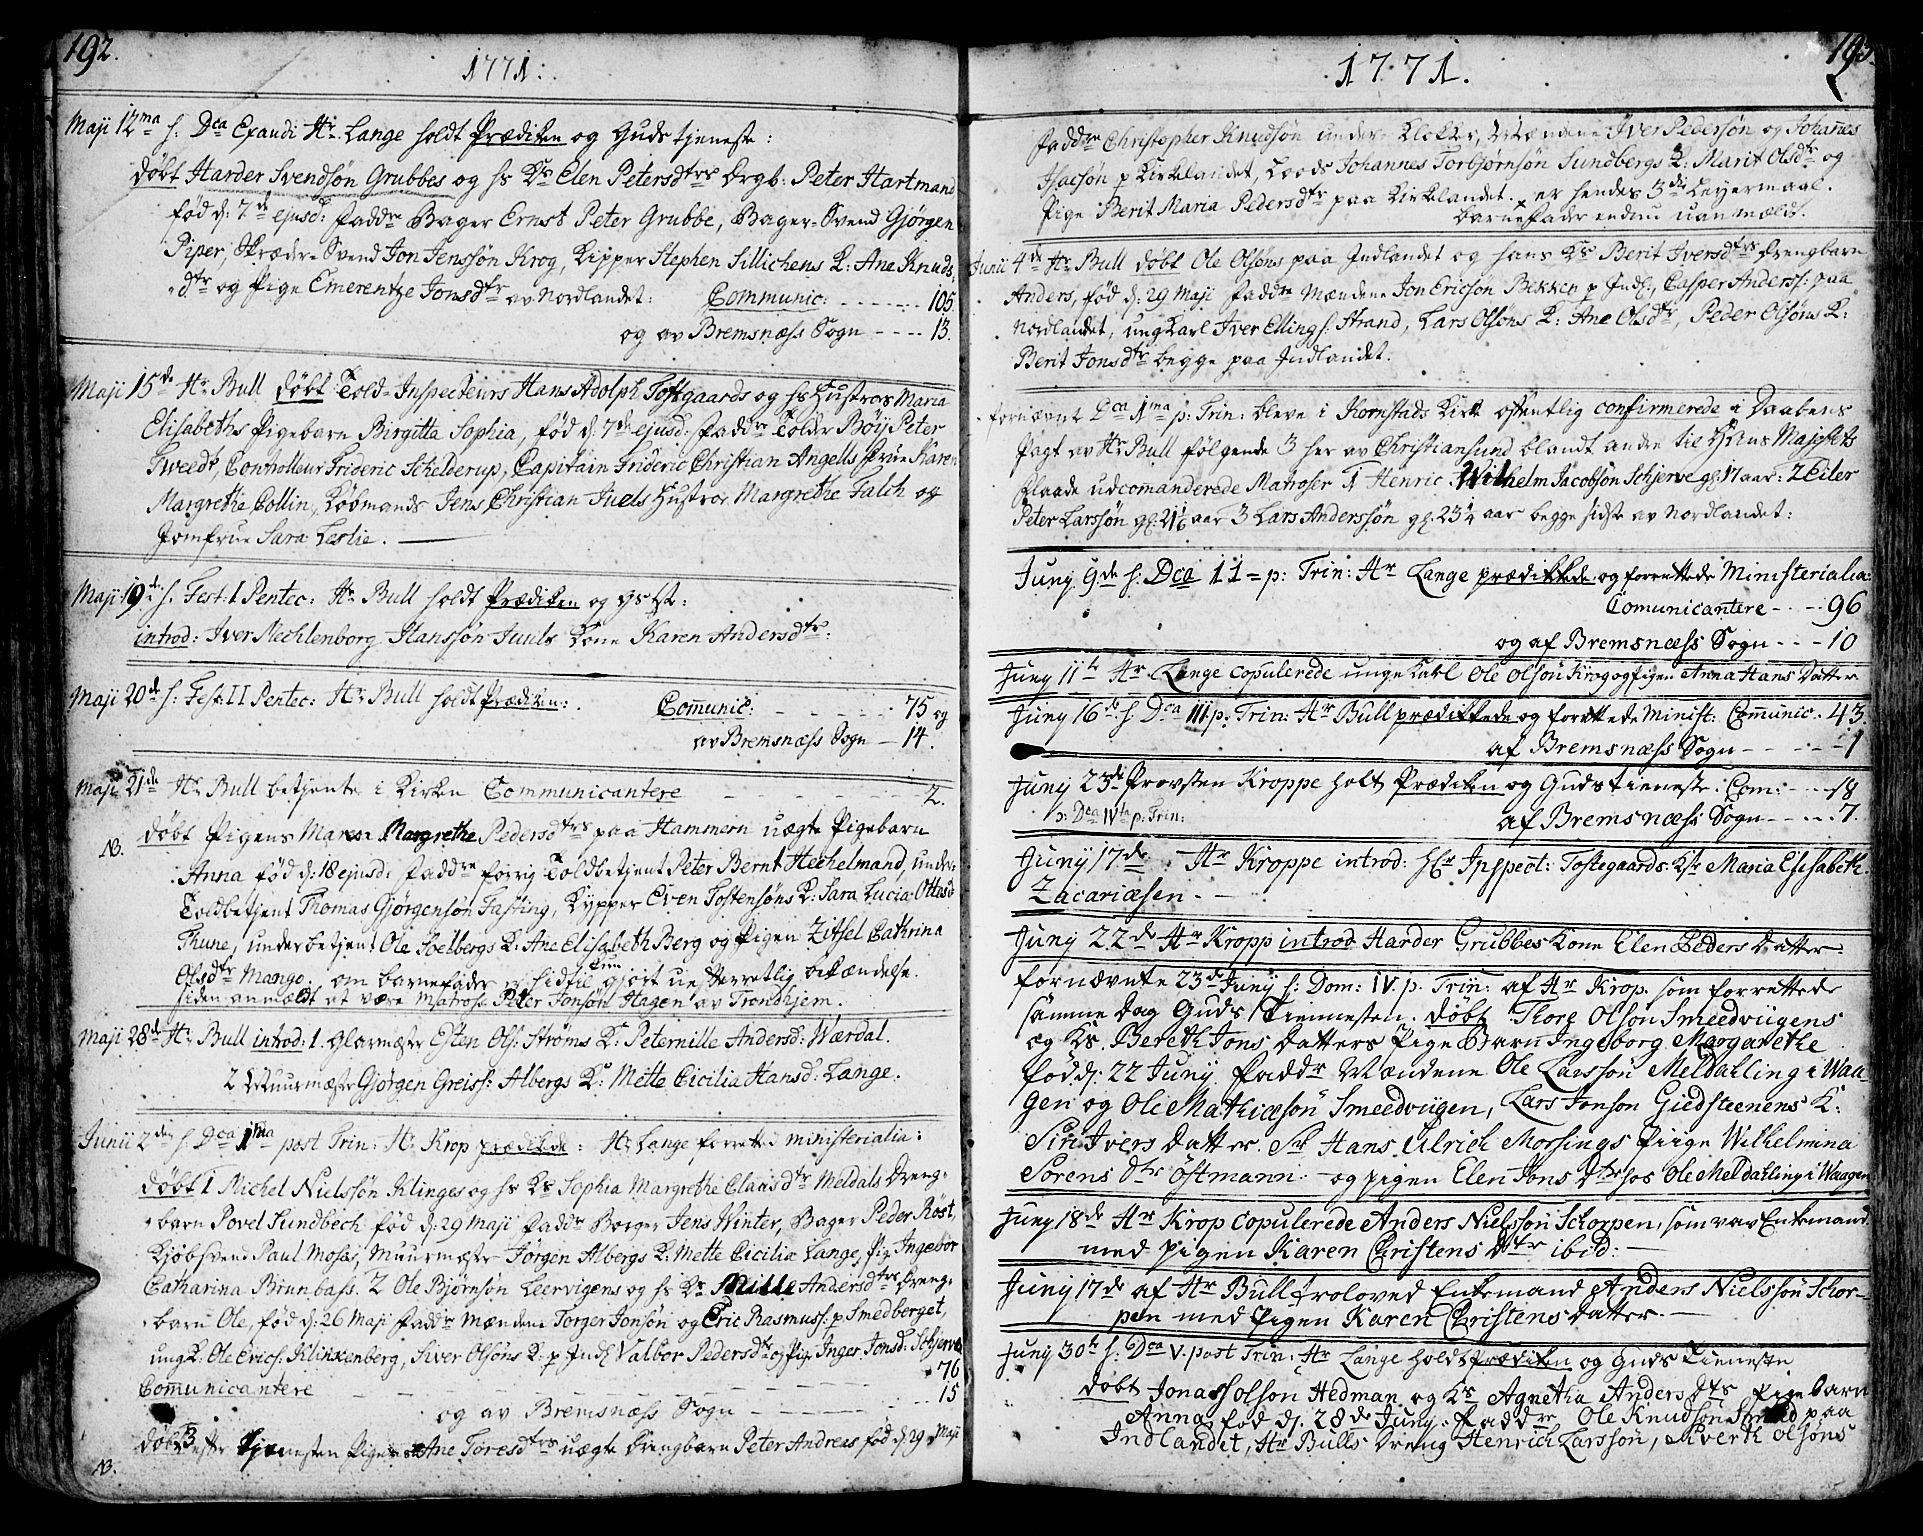 192.
1771:
Maji 12ma h: Dca Exaudi Hr Lange holdt Prædiken og Gudstjeneste:
døbt Harder Svendsön Grubbes og hs Ks Elen Petersdtrs drgb: Peter Hartmand
fød d: 7de ejusd: faddre Bager Ernst Peter Grubbe, Bager-Svend Gjörgen
Piper, Skræder-Svend Jon Jenssön Krog, Kipper Stephen Sillichens K: Ane Knuds
dtr og Pige Emerentze Jonsdtr av Nordlandet: Communic: - - - - 105.
og av Bremsnæss Sogn - - - - 13.
Maji 15de Hr Bull døbt Told-Inspecteurs Hans Adolph Toftgaards og hs Hustros Maria
Elisabeths Pigebarn Birgitta Sophia, fød d: 7de ejusd: faddre Tolder Böij Peter
Tweedt, Controlleur Frideric Schelderup, Capitain Frideric Christian Angells frue Karen
Margrethe Collin, Købmands Jens Christian Juels Hustroe Margrethe Falch og
Jomfrue Sara Leslie. —
Maji 19de h: Fest: I Pentec: Hr Bull holdt Prædiken og gstst:
introd: Iver Mechlenborg Hanssön Juuls Kone Karen Andersdtr:
Maji 20de h: Fest II Pentec: Hr Bull holdt Prædiken: Comunic: - - - - - - 75 og
av Bremsnæss Sogn — 14.
Maji 21de Hr Bull betjente i Kirken Communicantere — 2.
NB. døbt Pigens Maren Margrethe Pedersdtrs paa Hammern uægte Pigebarn
Anna fød d: 18 ejusd: faddre forrig Toldbetjent Peter Bernt Hechelmand, under-
Toldbetjent Thomas Gjörgensön Fasting, Kypper Even Tostensöns K: Sara Lucia Ottsd
Thune, underbetjent Ole Soelbergs K: Ane Elisabeth Berg og Pigen Zitsel Cathrina
Olsdtr Mango, om barnefader er hidtil kun gjort uefterretlig bekændelse.
siden anmældt at være Matros Peter Jonsön Hagen av Trondhjem.
Maji 28de Hr Bull introd: 1. Glarmæster Esten Ols: Ströms Ke Peternille Andersd: Wærdal.
2 Muurmæster Gjörgen Greiss: Albergs Ke Mette Cicilia Hansd: Lange.
Junii 2den h: Dca 1ma post Trin: Hr Krop prædikede: Hr Lange forretted ministerialia:
døbt 1 Michel Nielssön Klinges og hs Ks Sophia Margrethe Claus dtr Meldals Dreng-
barn Povel Sundbech fød d: 29 Maji faddr Borger Jens Winter, Bager Peder Röst,
Kjöbsvend Paul Moses, Muurmæster Jörgen Albergs K: Mette Cicilia Lange, Pig: Ingebor
Catharina Brunbass. 2 Ole Bjørnsön Leervigens og hs Ks Mille Andersdtrs Dreng-
barn Ole, fød d: 26 Maji faddre Mændene Torger Jonsön og Eric Rasmuss: p Smedberget,
ungk: Ole Erics: Klinxenberg, Siver Olsöns K: p Indl Valbor Pedersdtr og Pig: Inger Jonsd: Schjerva
Communicantere — — — — 76
og av Bremsnæss Sogn — — — 15
døbt 3 efter Tjenesten Pigens Ane Toresdtrs uægte Drengbarn Peter Andreas fød d: 29 Maji
NB.
193
1771.
Faddre Christopher Knudsön under-Klokker, Mændene Iver Pedersön og Johañes
Isacsön p Kirklandet, Loods Johannes Torbjørnsön Sundbergs K: Marit Olsdtr og
Pige Berit Maria Pedersdtr paa Kirklandet. er hendes 3die Leyermaal.
barnefader endnu uanmældt.
Junii 4de Hr Bull døbt Ole Olsöns paa Indlandet og hans Ks Berit Iversdtrs Drengbarn
Anders, fød d: 29 Maji Faddre Mændene Jon Ericsön Bekken p Indl:, Casper Anderss: paa
Nordlandet, ungKarl Iver Ellings: Strand, Lars Olsöns K: Ane Olsdtr, Peder Olsöns K:
Berit Jonsdtr begge paa Indlandet.
fornævnt Dca 1ma p: Trin: bleve i Kornstads Kirke offentlig confirmerede i Daabens
Pagt av Hr Bull følgende 3 her av Christiansund blandt andre til Hans Majestets
Flaade udcomanderede Matroser 1 Henric Wilhelm Jacobsön Schjerve gl: 17 aar: 2 Eiler
Peter Larssön gl: 21½ aar 3 Lars Anderssön gl: 23¼ aar begge sidste av Nordlandet:
Juny 9de h: Dca 11 = p: Trin: Hr Lange prædikkede og forrettede Ministerialia:
Comunicantere - - - 96
og af Bremsnæss Sogn - - - 10
Juny 11te Hr Lange copulerede unge Karl Ole Olsön Krog og pigen Anna Hans Datter
Juny 16de h: Dca III p: Trin: Hr Bull prædikkede og forrettede Minist: Comunic. 43.
af Bremsnæss Sogn - - - - - 1
Juny 23de Provsten Kroppe holt Prædiken og Guds tieneste: Com: - - - 18
h: Dca IVta p: Trin: af Bremsnæss Sogn - - - - 7.
Junij 17de Hr Kroppe introd: Hr Inspect: Tostegaards Kste Maria Elisabeth
Zacariæsen. —
Junj 22de Hr Kropp introd Harder Grubbes Kone Elen Peders Datter
fornævnte 23de Juny h: Dom: IV. p. Trin: af Hr Krop. som forrettede
samme Dag Guds Tiennesten. døbt Thore Olsön Smeedviigens
og Ks. Bereth Jons Datters Pige Barn Ingeborg Margarethe
fød d: 22 Juny. Faddr Mændene Ole Larssön Meldahling i Waa-
gen og Ole Mathiæsön Smeedviigen, Lars Jonson Giedsteenens K:
Siri Ivers Datter. Sr Hans Ulrich Morsings Piige Wilhelmina
Sörens Dtr Östmann. — og pigen Elen Jons Dtr hos Ole Meldahling i Waagen
Juny 18de Hr Krop copulerede Anders Nielssön Schorpen, som var Enkemand
med pigen Karen Christens Dtr ibid: —
Juny 17de af Hr Bull troloved Enkemand Anders Nielssön Schor-
pen med Pigen Karen Christens Datter —
Juny 30te h: Dca V. post Trin: Hr Lange holdt Prædiken og Guds Tieneste
døbt Jonas Olsön Hedman og Ks Agnetha Anders Dtrs Pige Barn
Anna fød d: 28de Juny. Faddre Ole Knudsön Strand paa
Indlandet, Hr Bulls Dreng Henrich Larssön, Siverth Olsöns